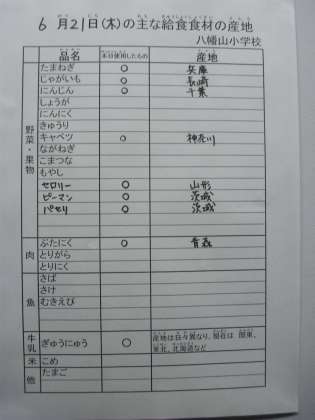 6月21日(木)の主な給食食材の産地
八幡山小学校
品名 本日使用したもの 産地
野菜・果物
たまねぎ ○ 兵庫
じゃがいも ○ 長崎
にんじん ○ 千葉
しょうが
にんにく
きゅうり
キャベツ ○ 神奈川
ながねぎ
こまつな
もやし
セロリー ○ 山形
ピーマン ○ 茨城
パセリ ○ 茨城
肉
ぶたにく ○ 青森
とりがら
とりにく
魚
さば
さけ
むきえび
牛乳 ぎゅうにゅう ○ 産地は日々異なり、現在は 関東、
東北、北海道など
米 こめ
他 たまご